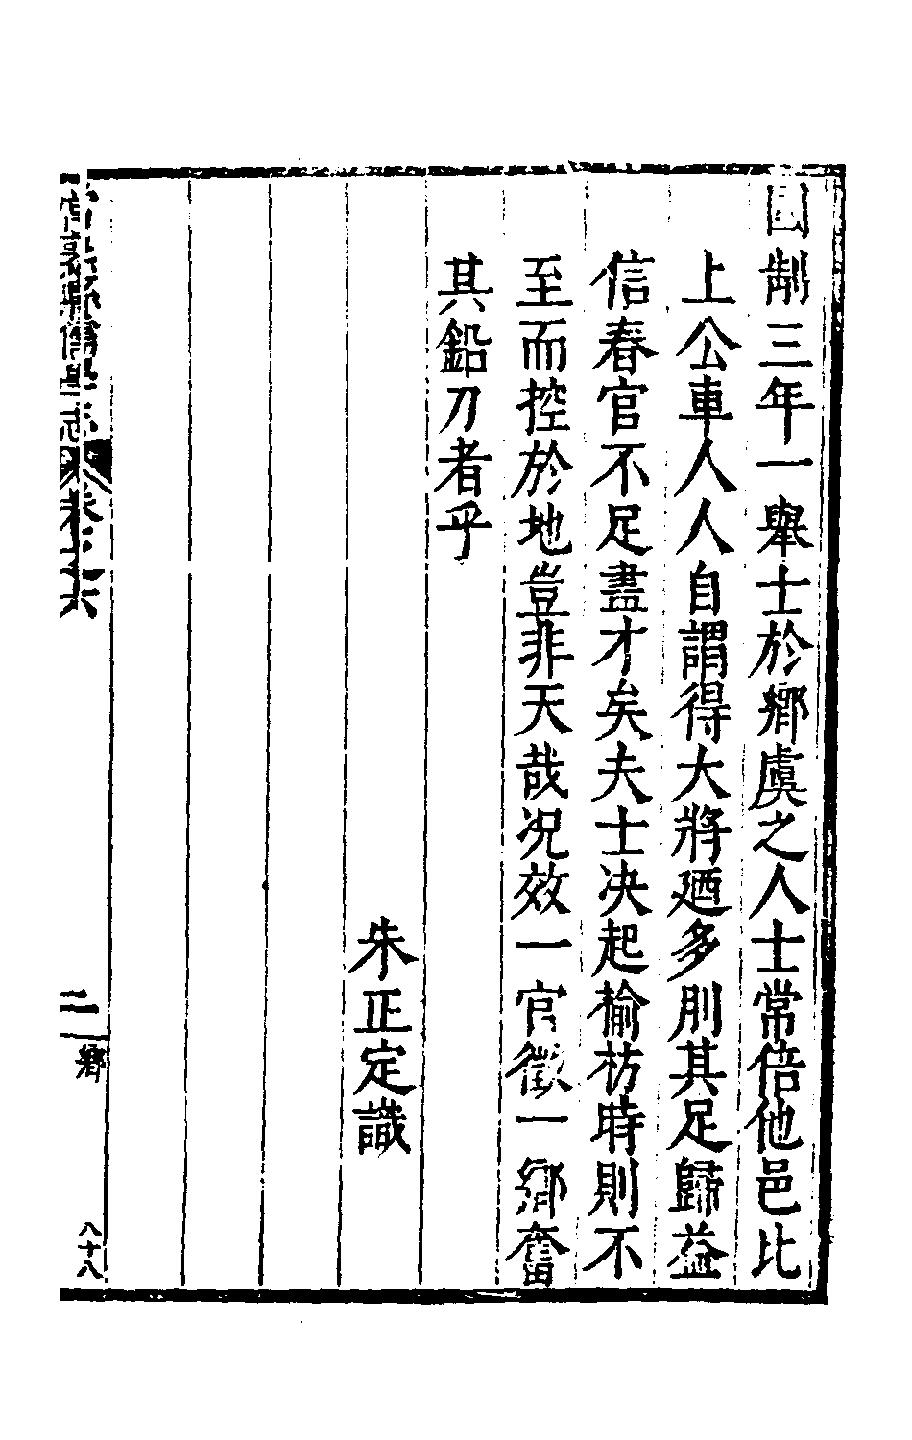 國制三年一舉士於鄉虞之人士常倍他邑比
上公車人人自謂得大將廼多刖其足歸益
信春官不足盡才矣夫士决起榆枋時則不
至而控於地豈非天哉况效一官徵一鄉奮
其鉛刀者乎
朱正定識
縣儒學志 卷六
二
鄉
八十八